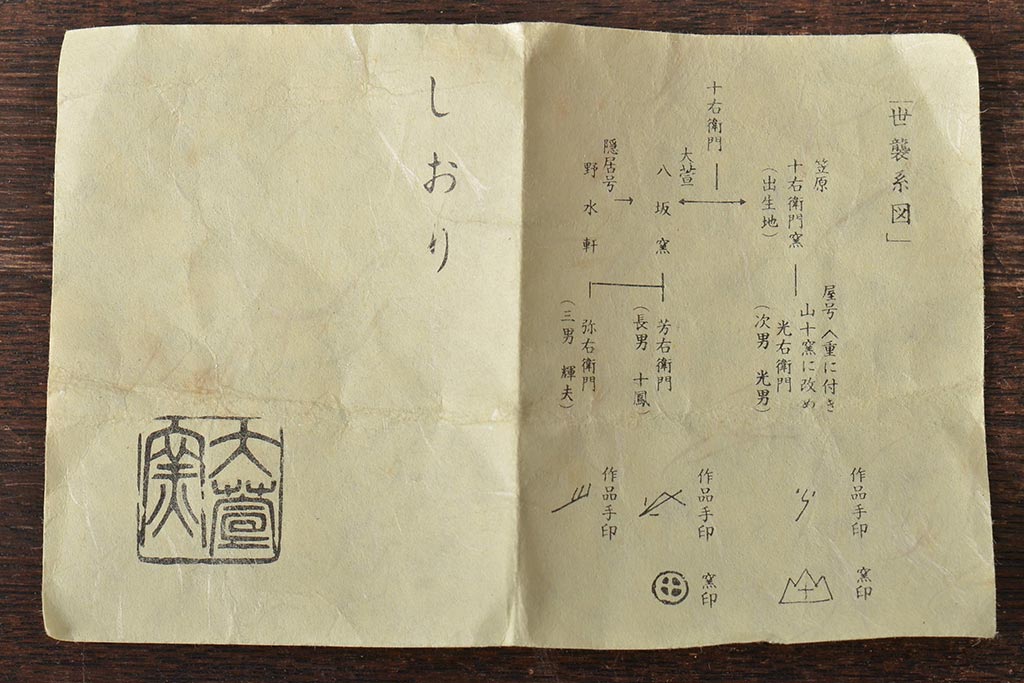 「世襲系図」
笠原
十右衛門窯
(出生地)
屋号八重に付き
山十窯に改め
光右衛門
(次男 光男)
作品手印
窯印
十右衛門
大萱
八坂窯
芳右衛門
(長男 十鳳)
作品手印
窯印
隠居号
野水軒
弥右衛門
(三男 輝夫)
作品手印
しおり
大萱
窯